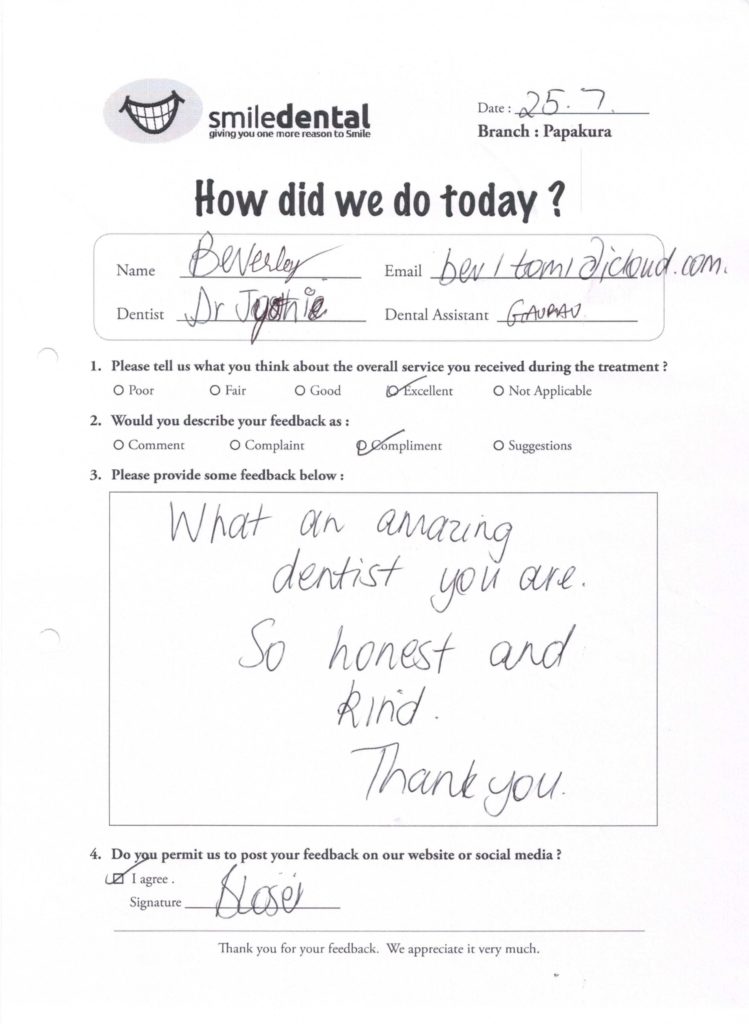 smiledental
giving you one more reason to Smile
Date : 25.7.
Branch : Papakura
How did we do today ?
Name Beverley Email
Dentist Dr Dental Assistant GAURAV
1. Please tell us what you think about the overall service you received during the treatment ?
Poor Fair Good Excellent Not Applicable
2. Would you describe your feedback as :
Comment Complaint Compliment Suggestions
3. Please provide some feedback below :
What an amazing
dentist you are.
So honest and
kind.
Thank you.
4. Do you permit us to post your feedback on our website or social media ?
I agree .
Signature
Thank you for your feedback. We appreciate it very much.